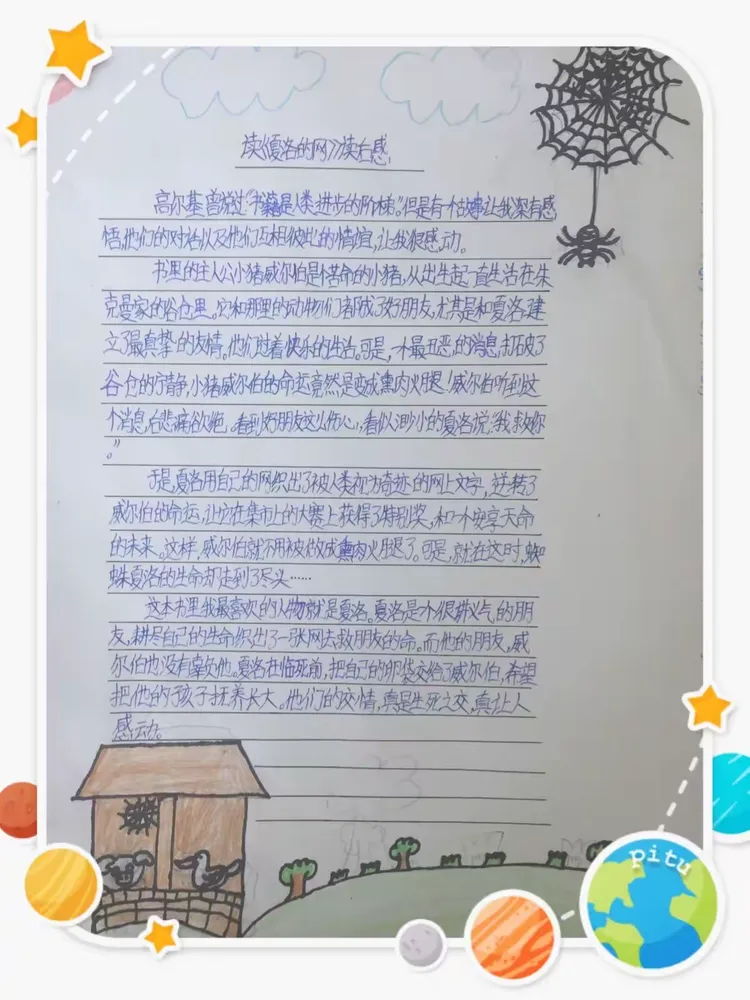 读《夏洛的网》读后感
高尔基曾说过“书籍是人类进步的阶梯。”但是有一个故事让我深有感
悟,他们的对话以及他们互相彼此的情谊,让我很感动。
书里的主人公小猪威尔伯是个苦命的小猪,从出生起一直生活在朱
克曼家的谷仓里。它和那里的动物们都成了好朋友,尤其是和夏洛,建
立了最真挚的友情。他们过着快乐的生活。可是,一个最丑恶的消息,打破了
谷仓的宁静,小猪威尔伯的命运竟然是变成熏肉火腿!威尔伯听到这
个消息,悲痛欲绝。看到好朋友这么伤心,看似渺小的夏洛说:“我救你
。”
于是,夏洛用自己的网织出了被人类视为奇迹的网上文字,逆转了
威尔伯的命运,让它在集市上的大赛上获得了特别奖,和一个安享天命
的未来。这样,威尔伯就不用被做成熏肉火腿了。可是,就在这时,蜘
蛛夏洛的生命却走到了尽头……
这本书里我最喜欢的人物就是夏洛。夏洛是个很讲义气的朋
友,耕尽自己的生命织出了一张网去救朋友的命。而他的朋友,威
尔伯也没有辜负他。夏洛在临死前,把自己的卵袋交给了威尔伯,希望
把他的孩子抚养长大。他们的交情,真是生死之交,真让人
感动。
pitu